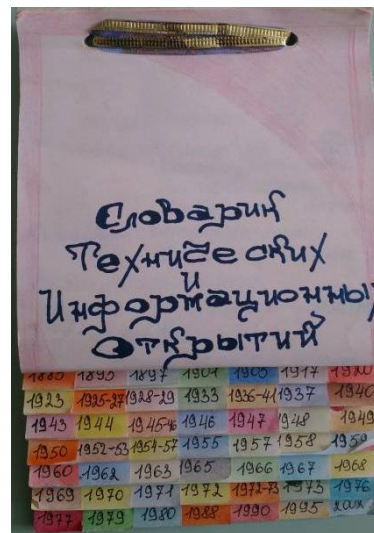 Словарик
Технических
и
Информационных
Открытий
1885 1895 1897 1901 1905 1917 1920
1923 1925-27 1928-29 1933 1936-41 1937 1940
1943 1944 1945-46 1946 1947 1948 1949
1950 1952-53 1954-57 1955 1957 1958 1959
1960 1962 1963 1965 1966 1967 1968
1969 1970 1971 1972 1972-73 1973 1976
1977 1979 1980 1988 1990 1995